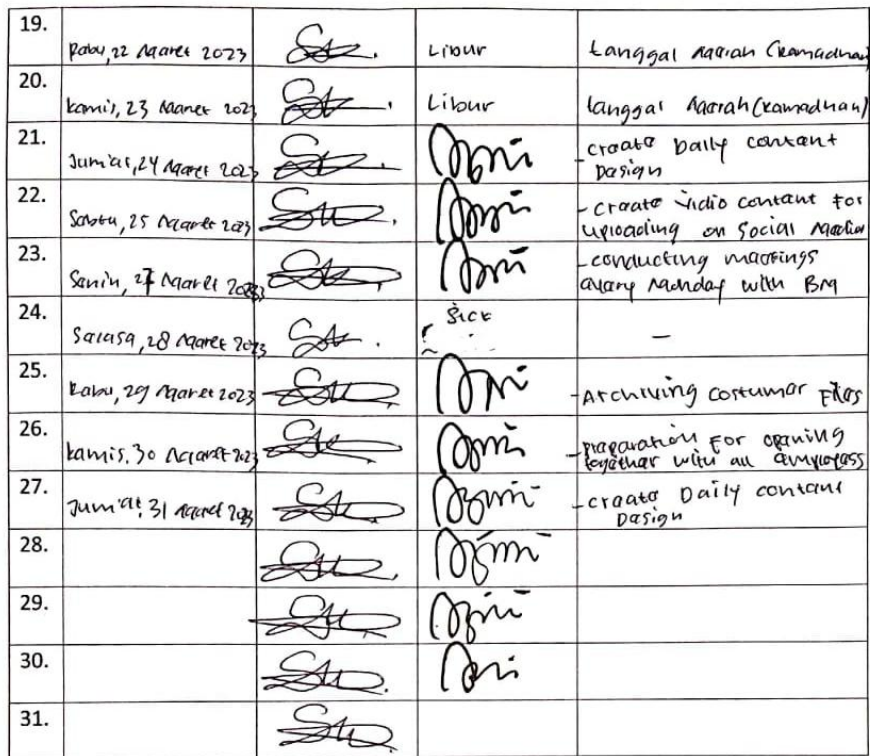 19.
Rabu, 22 Maret 2023 Libur tanggal Merah (Ramadhan)
20.
Kamis, 23 Maret 2023 Libur tanggal Merah (Ramadhan)
21.
Jum'at, 24 Maret 2023 - create Daily content
Design
22.
Sabtu, 25 Maret 2023 - create vidio content for
uploading on Social Media
23.
Senin, 27 Maret 2023 - conducting meetings
every Monday with BM
24.
Selasa, 28 Maret 2023 Sick -
25.
Rabu, 29 Maret 2023 - Archiving costumer Files
26.
Kamis, 30 Maret 2023 - preparation for opening
together with all employees
27.
Jum'at, 31 Maret 2023 - create Daily content
Design
28.
29.
30.
31.